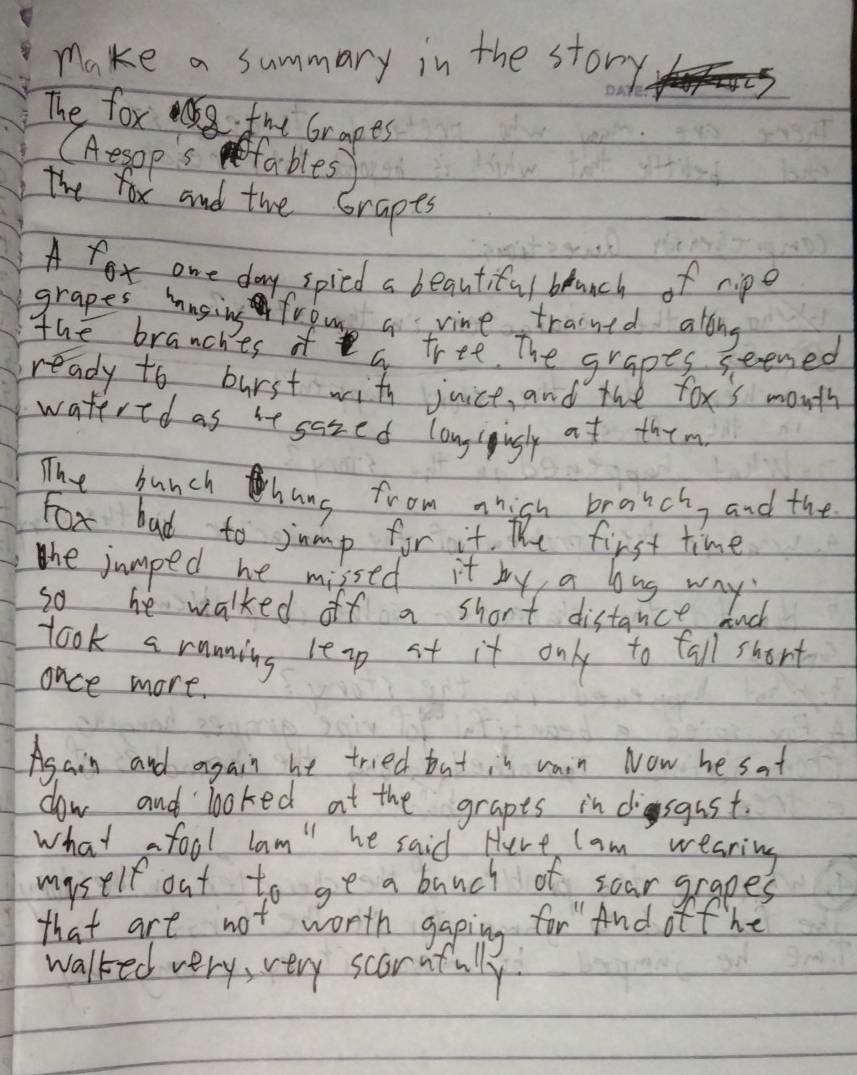 Make a summary in the story
DATE:
The fox the Grapes
(Aesop's fables)
The fox and the Grapes
A fox one day spied a beautiful bunch of ripe
grapes hanging from a vine trained along
the branches of a tree. The grapes seemed
ready to burst with juice, and the fox's mouth
watered as he gazed longingly at them.
The bunch hung from a high branch, and the
Fox had to jump for it. The first time
he jumped he missed it by a long way.
so he walked off a short distance and
took a running leap at it only to fall short
once more.
Again and again he tried but in vain Now he sat
dow and looked at the grapes in disgust.
What a fool Iam" he said Here Iam wearing
myself out to ge a bunch of sour grapes
that are not worth gaping for" And off he
walked very, very scornfully.